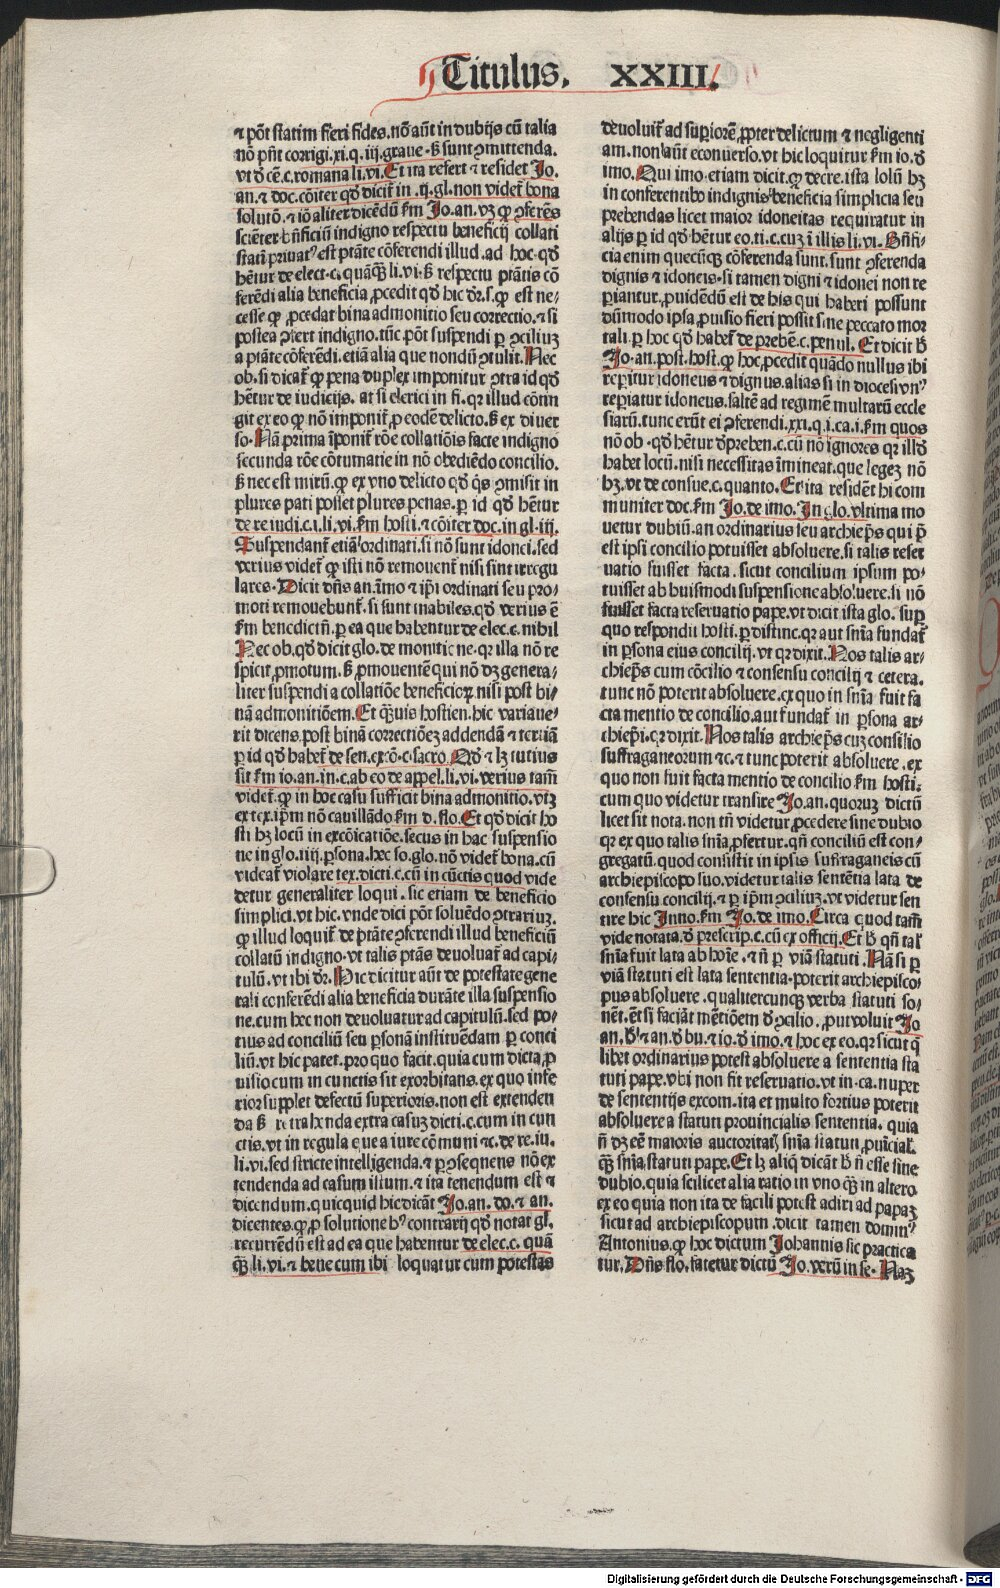 Titulus. XXIII.
⁊ pōt statim fieri fides. nō aūt in dubijs cū talia
nō pn̄t corrigi. xi. q. iij. graue. ß sunt ꝯmittenda.
vt đ cē. c. romana li. vi. Et ita refert ⁊ residet Jo.
an. ⁊ doc. cōiter qđ dicit̄ in .ij. gl. non videt̄ bona
solutō. ⁊ iō aliter dicēdū ẜm Jo. an. vꝫ ꝙ ꝯferēs
sciēter bn̄ficiū indigno respectu beneficij collati
statī priuat⁹ est ptāte cōferendi illud. ad hoc. qđ
hētur de elect. c. quāꝙ̄ li. vi. ß respectu ptātis cō
ferēdi alia beneficia ꝓcedit qđ hic dꝫ. s. ꝙ est ne⸗
cesse ꝙ ꝓcedat bina admonitio seu correctio. ⁊ si
postea ꝯfert indigno. tūc pōt suspendi ꝑ ꝯciliuꝫ
a ptāte cōferēdi. etiā alia que nondū ꝯtulit. Nec
ob. si dicat̄ ꝙ pena duplex imponitur ꝯtra id qđ
hētur de iudicijs. at si clerici in fi. qꝛ illud cōtin
git ex eo ꝙ nō imponit̄ ꝓ eodē delicto. ß ex diuer
so. Nā prima īponit̄ rōe collatiōis facte indigno
secunda rōe cōtumatie in nō obediēdo concilio.
ß nec est mirū. ꝙ ex vno delicto qđ q̄s ꝯmisit in
plures pati posset plures penas. ꝑ id qđ hētur
de re iudi. c. i. li. vi. ẜm hosti. ⁊ cōiter doc. in gl. iij.
Suspendant̄ etiā ordinati. si nō sunt idonei. sed
verius videt̄ ꝙ isti nō remouent̄ nisi sint irregu
lares. Dicit dn̄s an. īmo ⁊ ip̄i ordinati seu pro⸗
moti remouebunt̄. si sunt inabiles. qđ verius ē
ẜm benedictn̄. ꝑ ea que habentur de elec. c. nibil
Nec ob. qđ dicit glo. de monitione. qꝛ illa nō re
spicit ꝓmotum. ß ꝓmouentē qui nō dꝫ genera⸗
liter suspendi a collatiōe beneficioꝝ nisi post bi⸗
nā admonitiōem. Et q̄uis hostien. hic variaue⸗
rit dicens. post binā correctiōeꝫ addendā ⁊ tertiā
ꝑ id qđ habet̄ de sen. ex. ō. c. sacro. Qđ ⁊ lꝫ tutius
sit ẜm io. an. in. c. ab eo de appel. li. vi. verius tam̄
videt̄. ꝙ in hoc casu sufficit bina admonitio. vtꝫ
ex tex. ip̄m nō cauillādo ẜm d. flo. Et qđ dicit ho
sti hꝫ locū in excōicatiōe. secus in hac suspensio
ne in glo. iiij. ꝑsona. hec so. glo. nō videt̄ bona. cū
videat̄ violare tex. dicti. c. cū in cūctis quod vide
detur generaliter loqui. sic etiam de beneficio
simplici. vt hic. vnde dici pōt soluēdo ꝯtrariuꝫ.
ꝙ illud loquit̄ de ptāte ꝯferendi illud beneficiū
collatū indigno. vt talis ptās deuoluat̄ ad capi⸗
tulū. vt ibi dꝫ. Hic dicitur aūt de potestate gene
rali conferēdi alia beneficia durāte illa suspensio
ne. cum hec non deuoluatur ad capitulū. sed po⸗
tius ad conciliū seu ꝑsonā instituēdam ꝑ conci
liū. vt hic patet. pro quo facit. quia cum dicta ꝓ
uisio cum in cunctis sit exorbitans. ex quo infe
rior supplet defectū superioris. non est extenden
da ß retrahenda extra casuꝫ dicti. c. cum in cun
ctis. vt in regula que a iure cōmuni ⁊c. de re. iu.
li. vi. sed stricte intelligenda. ⁊ ꝑ ꝯseqnens nō ex
tendenda ad casum istum. ⁊ ita tenendum est ⁊
dicendum. quicquid hic dicāt Jo. an. do. ⁊ an.
dicentes. ꝙ ꝓ solutione h⁹ contrarij qđ notat gl.
recurrēdū est ad ea que habentur de elec. c. quā
ꝙ̄. li. vi. ⁊ bene cum ibi loquatur cum potestas
deuoluit̄ ad suꝑiorē ꝓpter delictum ⁊ negligenti
am. non aūt econuerso. vt hic loquitur ẜm io. đ
imo. Qui imo etiam dicit. ꝙ decre. ista solū hꝫ
in conferentibo indignis beneficia simplicia seu
prebendas licet maior idoneitas requiratur in
alijs ꝑ id qđ hētur eo. ti. c. cuꝫ ī illis li. vi. Bn̄fi⸗
cia enim quecūqꝫ cōferenda sunt. sunt ꝯferenda
dignis ⁊ idoneis. si tamen digni ⁊ idonei non re
ꝑiantur. ꝓuidēdū est de his qui haberi possunt
dūmodo ipsa ꝓuisio fieri possit sine peccato mor
tali. ꝑ hoc qđ habet̄ de prebē. c. penul. Et dicit ħ
Jo. an. post. host. ꝙ hoc ꝓcedit quādo nullus ibi
reꝑitur idoneus ⁊ dignus. alias si in diocesi vn⁹
reꝑiatur idoneus. saltē ad regimē multarū eccle
siarū. tunc erūt ei ꝯferendi. xxi. q. i. ca. i. ẜm quos
nō ob. qđ hētur đ preben. c. cū nō ignores qꝛ illđ
habet locū. nisi necessitas īmineat. que legeꝫ nō
hꝫ. vt de consue. c. quanto. Et ita resident hi com
muniter doc. ẜm Jo. de imo. In glo. vltima mo
uetur dubiū. an ordinarius seu archiep̄s qui p̄
est ipsi concilio potuisset absoluere. si talis reser
uatio fuisset facta. sicut concilium ipsum po⸗
tuisset ab huismodi suspensione absoluere. si nō
fuisset facta reseruatio pape. vt dicit ista glo. suꝑ
quo respondit hosti. ꝑ distinc. qꝛ aut sn̄ia fundat̄
in ꝑsona eius concilij. vt qꝛ dixit. Nos talis ar⸗
chiep̄s cum cōcilio ⁊ consensu concilij ⁊ cetera.
tunc nō poterit absoluere. ex quo in sn̄ia fuit fa
cta mentio de concilio. aut fundat̄ in ꝑsona ar⸗
chiep̄i. qꝛ dixit. Nos talis archiep̄s cuꝫ consilio
suffraganeorum ⁊c. ⁊ tunc poterit absoluere. ex
quo non fuit facta mentio de concilio ẜm hosti.
cum quo videtur transire Jo. an. quoruꝫ dictū
licet sit nota. non tn̄ videtur ꝓcedere sine dubio
qꝛ ex quo talis sn̄ia ꝓfertur. qn̄ conciliū est con⸗
gregatū. quod consistit in ipsis suffraganeis cū
archiepiscopo suo. videtur talis sentētia lata de
consensu concilij. ⁊ ꝑ ip̄m ꝯciliuꝫ. vt videtur sen
tire hic Inno. ẜm Jo. de imo. Circa quod tam̄
vide notata. đ prescrip. c. cū ex officij. Et ħ qn̄ tal̄
sn̄ia fuit lata ab hoīe. ⁊ n̄ ꝑ viā statuti. Nā si ꝑ
viā statuti est lata sententia. poterit archiepisco⸗
pus absoluere. qualitercunqꝫ verba statuti so⸗
nēt. ēt si faciāt mētiōem đ ꝯcilio. ꝓut voluit Jo
an. ħ ⁊ an. đ bu. ⁊ io. đ imo. ⁊ hoc ex eo. qꝛ sicut q̄
libet ordinarius potest absoluere a sententia sta
tuti pape. vbi non fit reseruatio. vt in. ca. nuper
de sententijs excom. ita et multo fortius poterit
absoluere a statuti prouincialis sententia. quia
n̄ dꝫ eē maioris auctoritatis sn̄ia statuti ꝓuīcial̄.
ꝙ̄ sn̄ia statuti pape. Et lꝫ aliq̄ dicāt ħ n̄ esse sine
dubio. quia scilicet alia ratio in vno ꝙ̄ in altero
ex eo quia non ita de facili potest adiri ad papaꝫ
sicut ad archiepiscopum. dicit tamen domin⁹
Antonius. ꝙ hoc dictum Johannis sic practica
tur. Dn̄s flo. fatetur dictū Jo. verū in se. Naꝫ
Digitalisierung gefördert durch die Deutsche Forschungsgemeinschaft - DFG